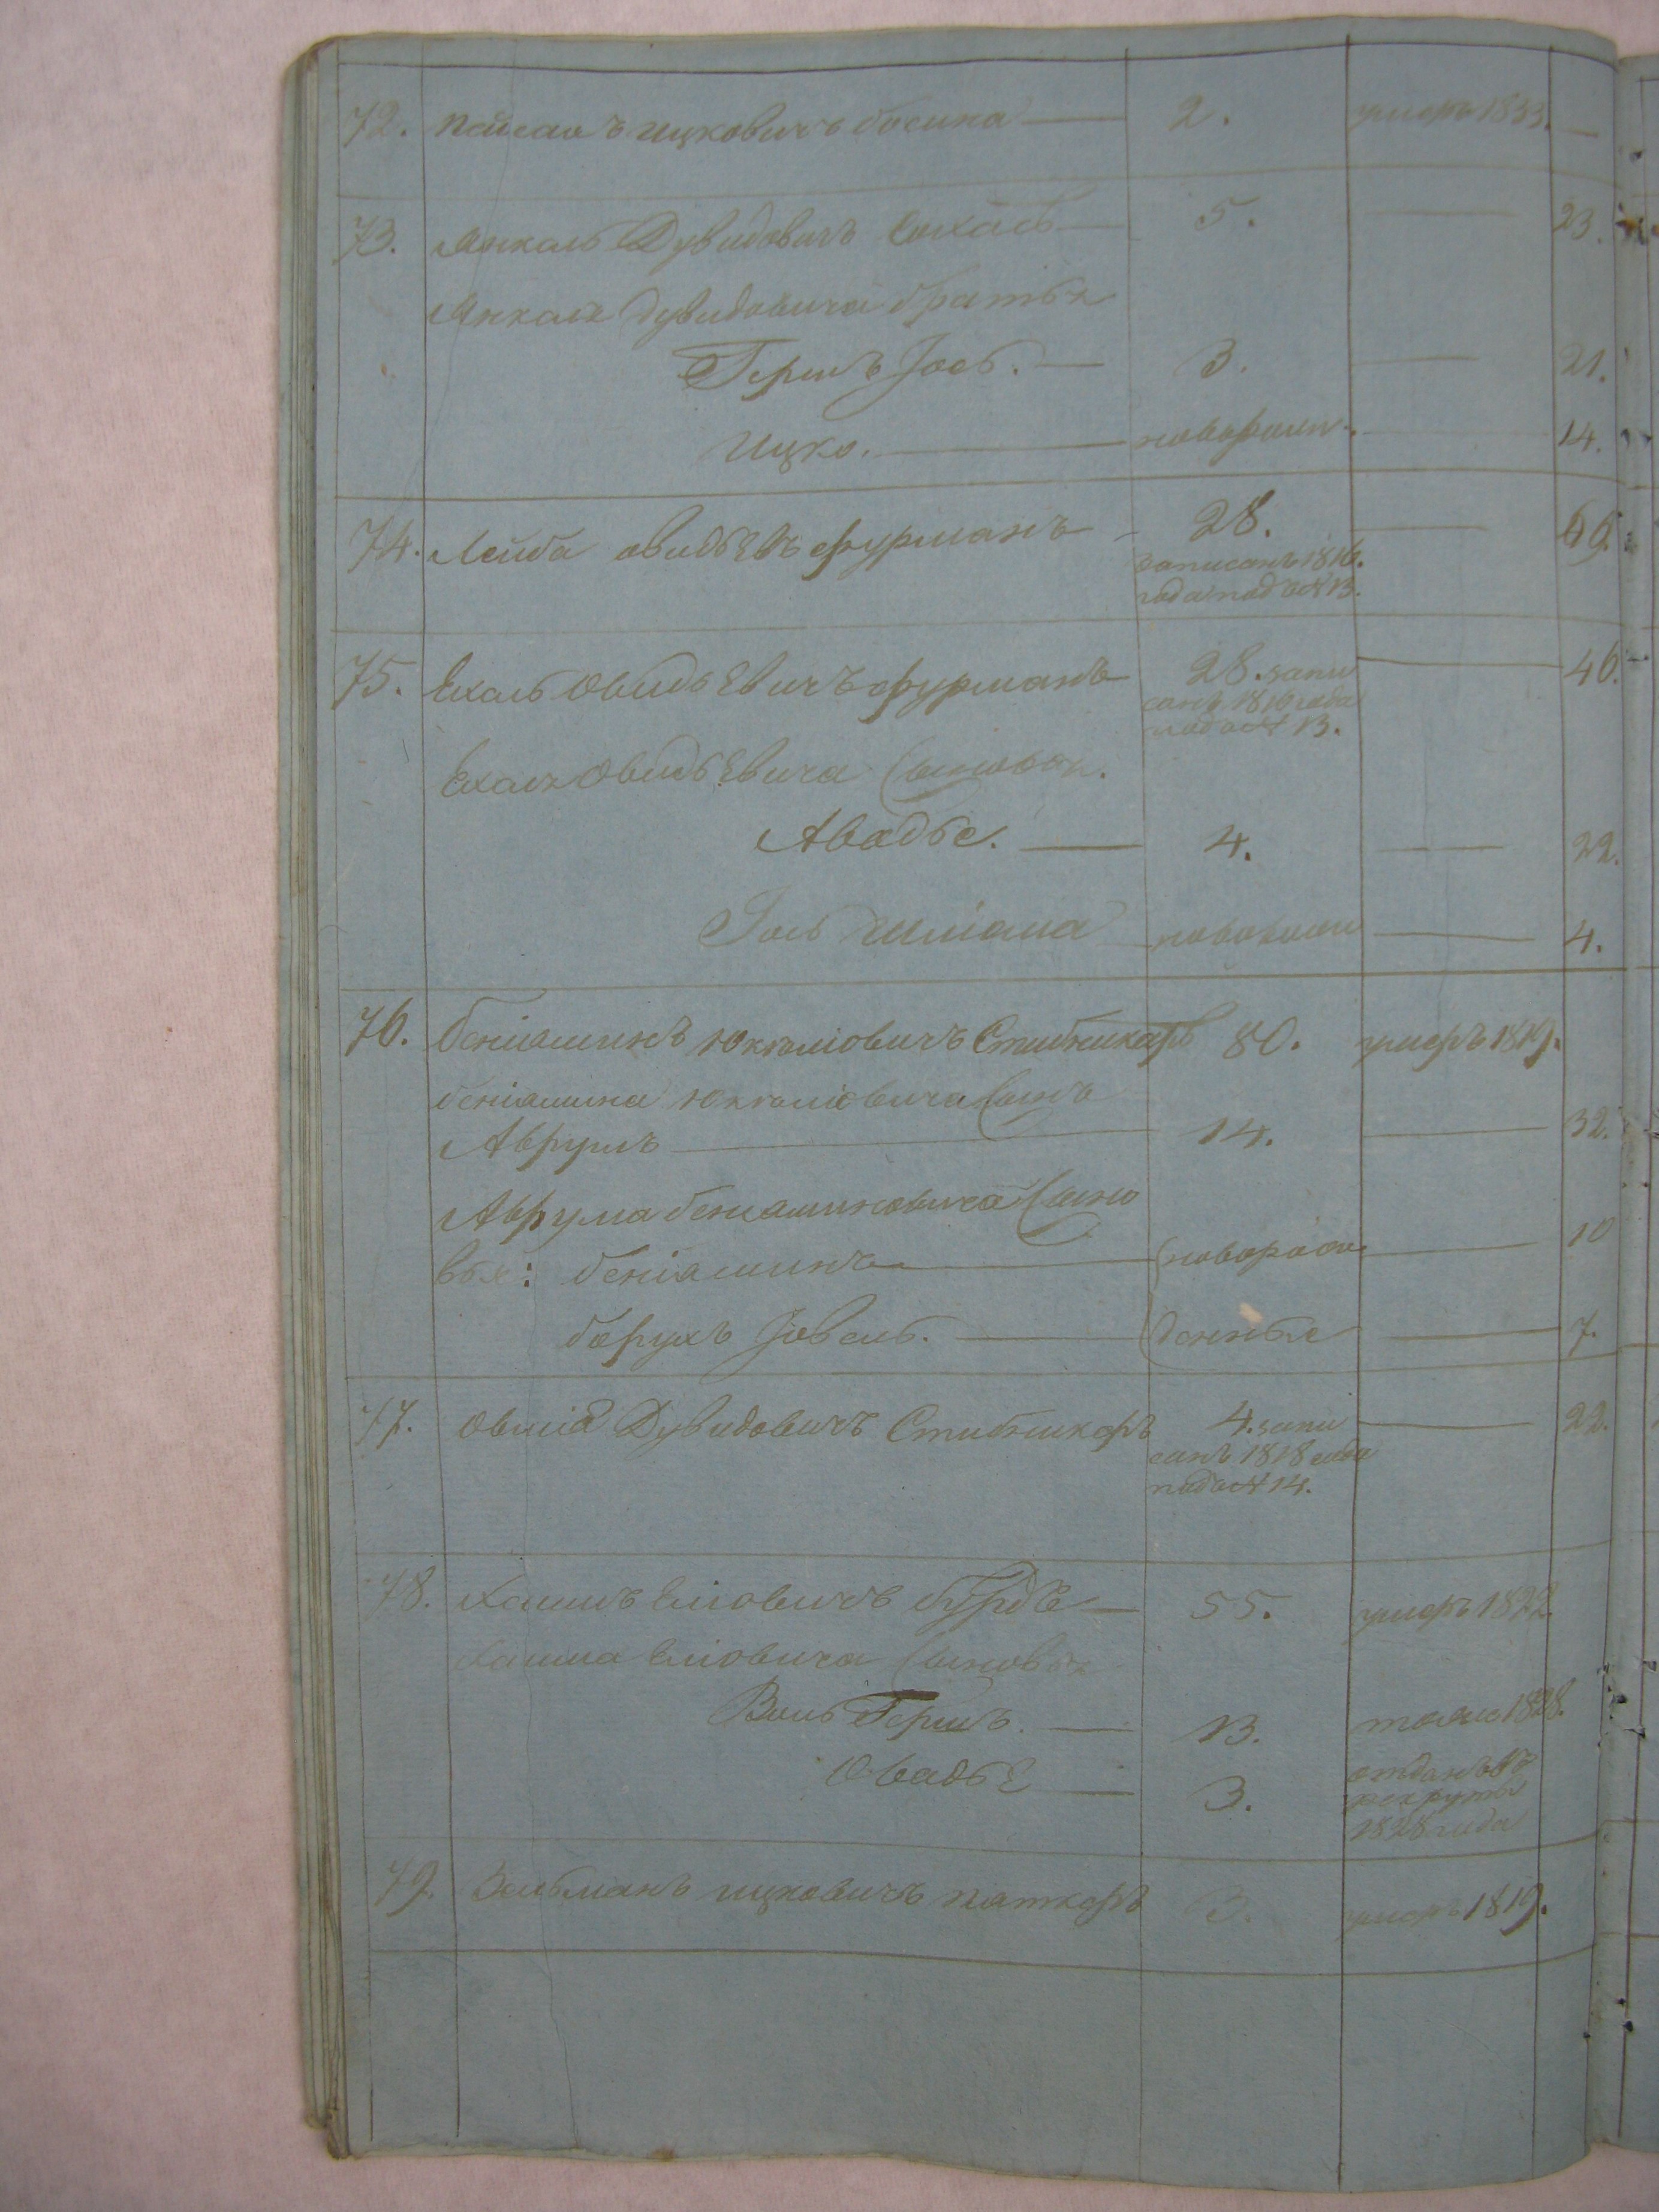 72. Пейсахъ Ицковичъ босина — 2. умеръ 1833. —
73. Янкель Дувидовичъ Сохаль — 5. — 23.
Янкеля Дувидовича братья
Гершъ Іось. — 3. — 21.
Ицко. — новорожн. — 14.
74. Лейба овидьевъ фурманъ — 28. — 69.
записанъ 1816.
года подъ № 13.
75. Ехель Овидьевичъ фурманъ 28. запи — 46.
санъ 1816 года
подъ № 13.
Ехеля Овидьевича Сыновья.
Авадье. — 4. — 22.
Іось новорожн — 4.
76. беніаминъ Юкеліовичъ Стибникаръ 80. умеръ 1819.
беніамина Юкеліовича Сынъ
Аврумъ — 14. — 32.
Аврума беніаминовича Сыно
вья: беніаминъ — новорож — 10
борухъ Іовель. — денные — 7.
77. Овшіа Дувидовичъ Стибникаръ 4. запи — 22.
санъ 1818 года
подъ № 14.
78. Хаимъ Еліовичъ бурдѣ — 55. умеръ 1822
Хаима Еліовича Сыновья
Вольгершъ. — 13. тоже 1828.
Овадье — 3. отданъ въ
рекруты
1828 года
79. Зельманъ Ицковичъ паткаръ 3. умеръ 1819.